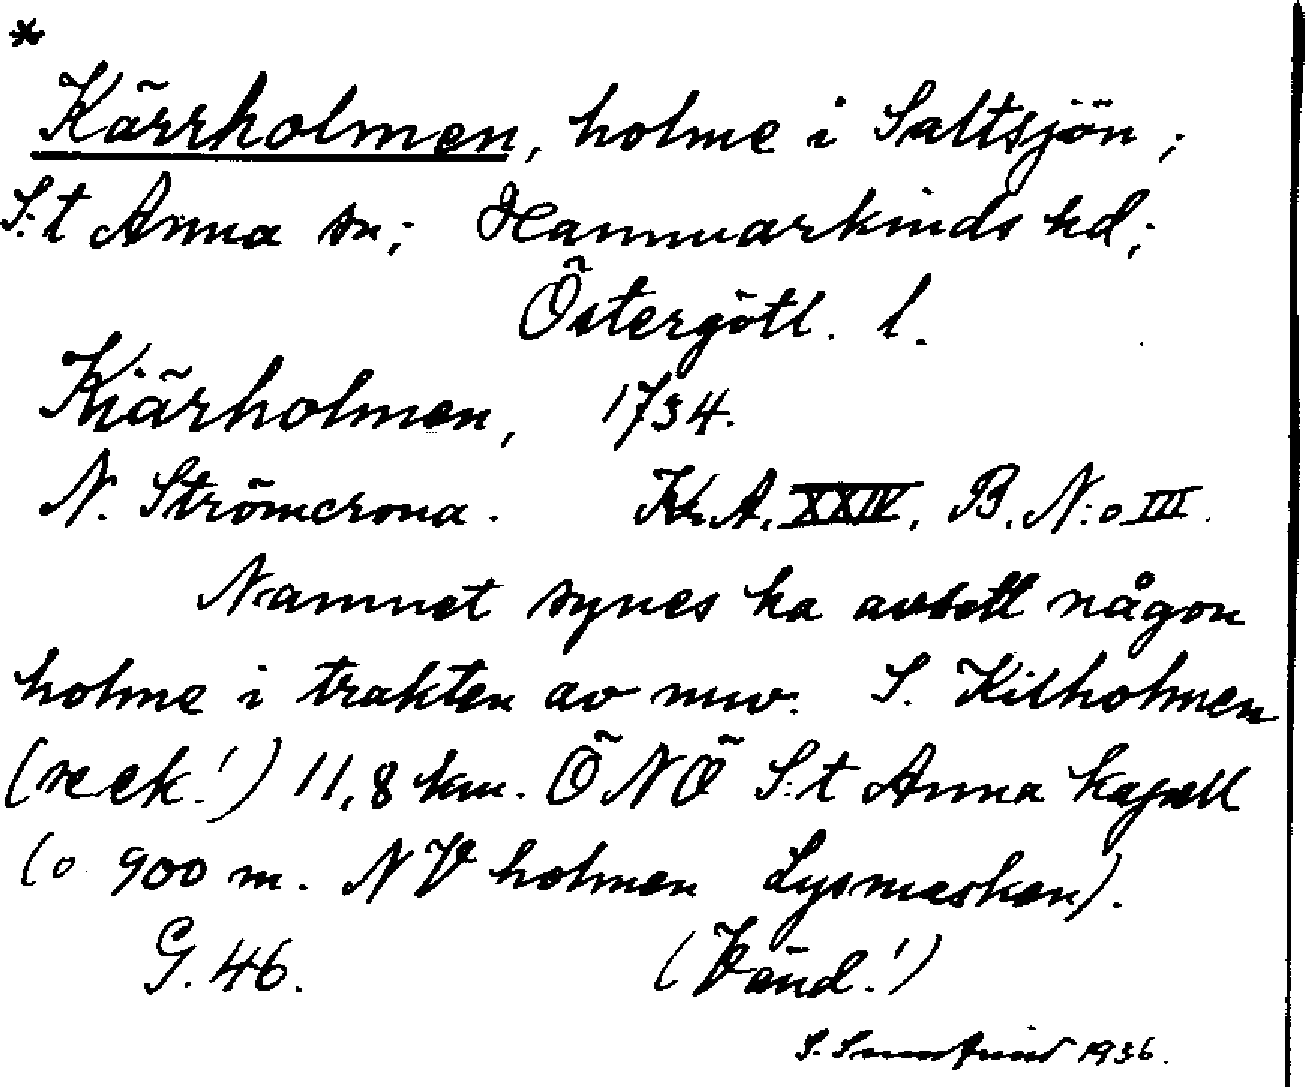 *
Kärrholmen, holme i Saltsjön;
S:t Anna sn; Hammarkinds hd;
Östergötl. l.
Kiärholmen, 1734.
N. Strömcrona. Kr.A. XXIV. B. N:o III.
Namnet synes ha avsett någon
holme i trakten av nuv. S. Kilholmen
(rek!) 11,8 km. ÖNÖ S:t Anna kapell
(o 900 m. NV holmen Lysmasken).
G. 46. (Vänd!)
S. 1936.